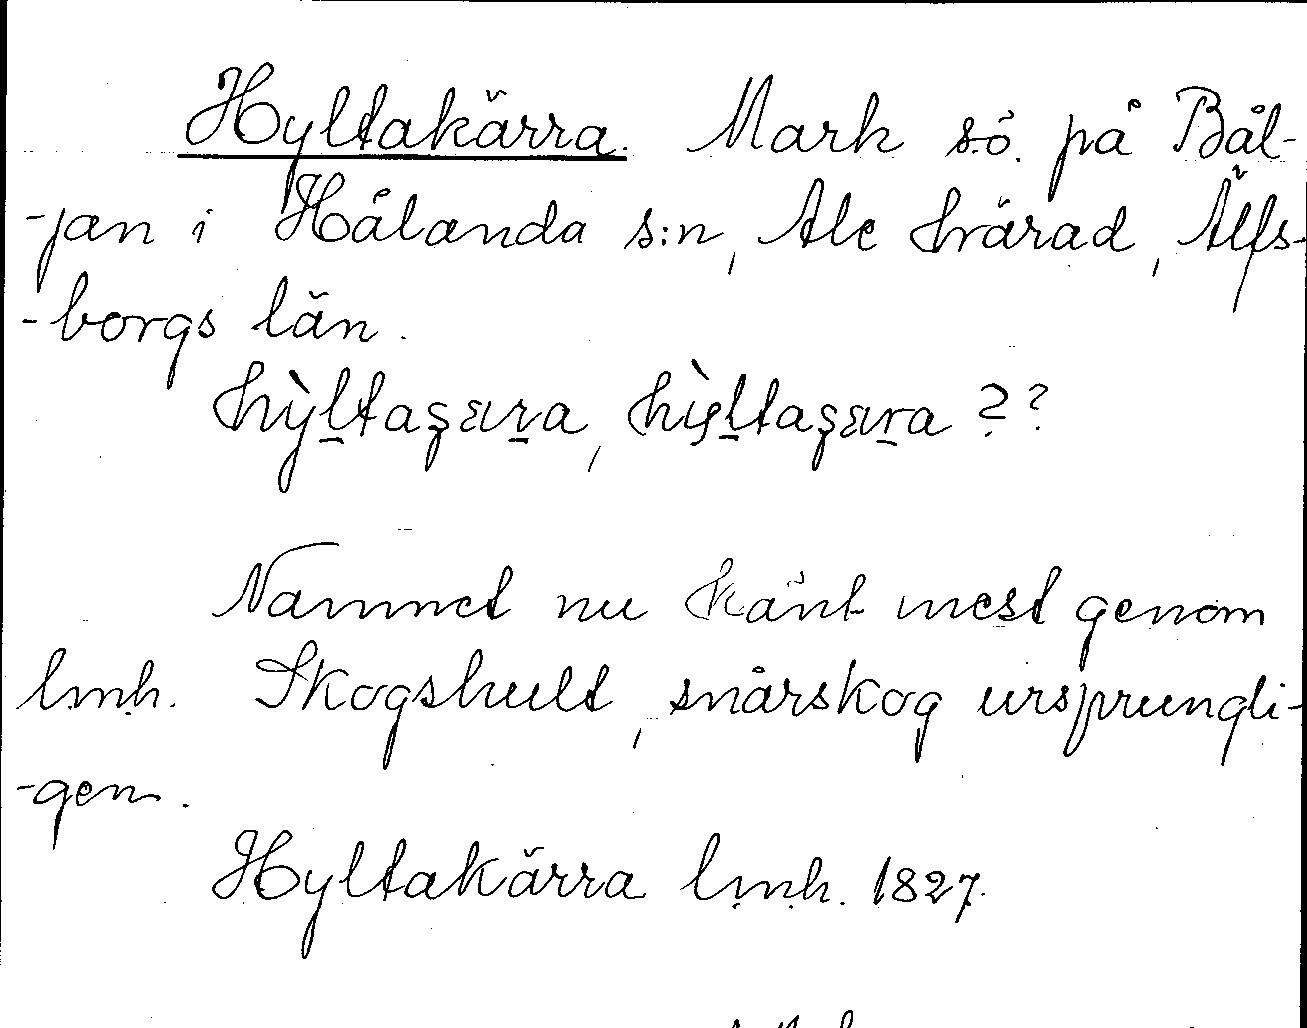 Hyltakärra. Mark sö. på Bål-
-jan i Hålanda s:n, Ale härad, Älfs-
-borgs län.
hỳltaʂæra, hỳltaʂæra ??
Namnet nu känt mest genom
lmh. Skogshult, snårskog ursprungli-
-gen.
Hyltakärra lmh. 1827.